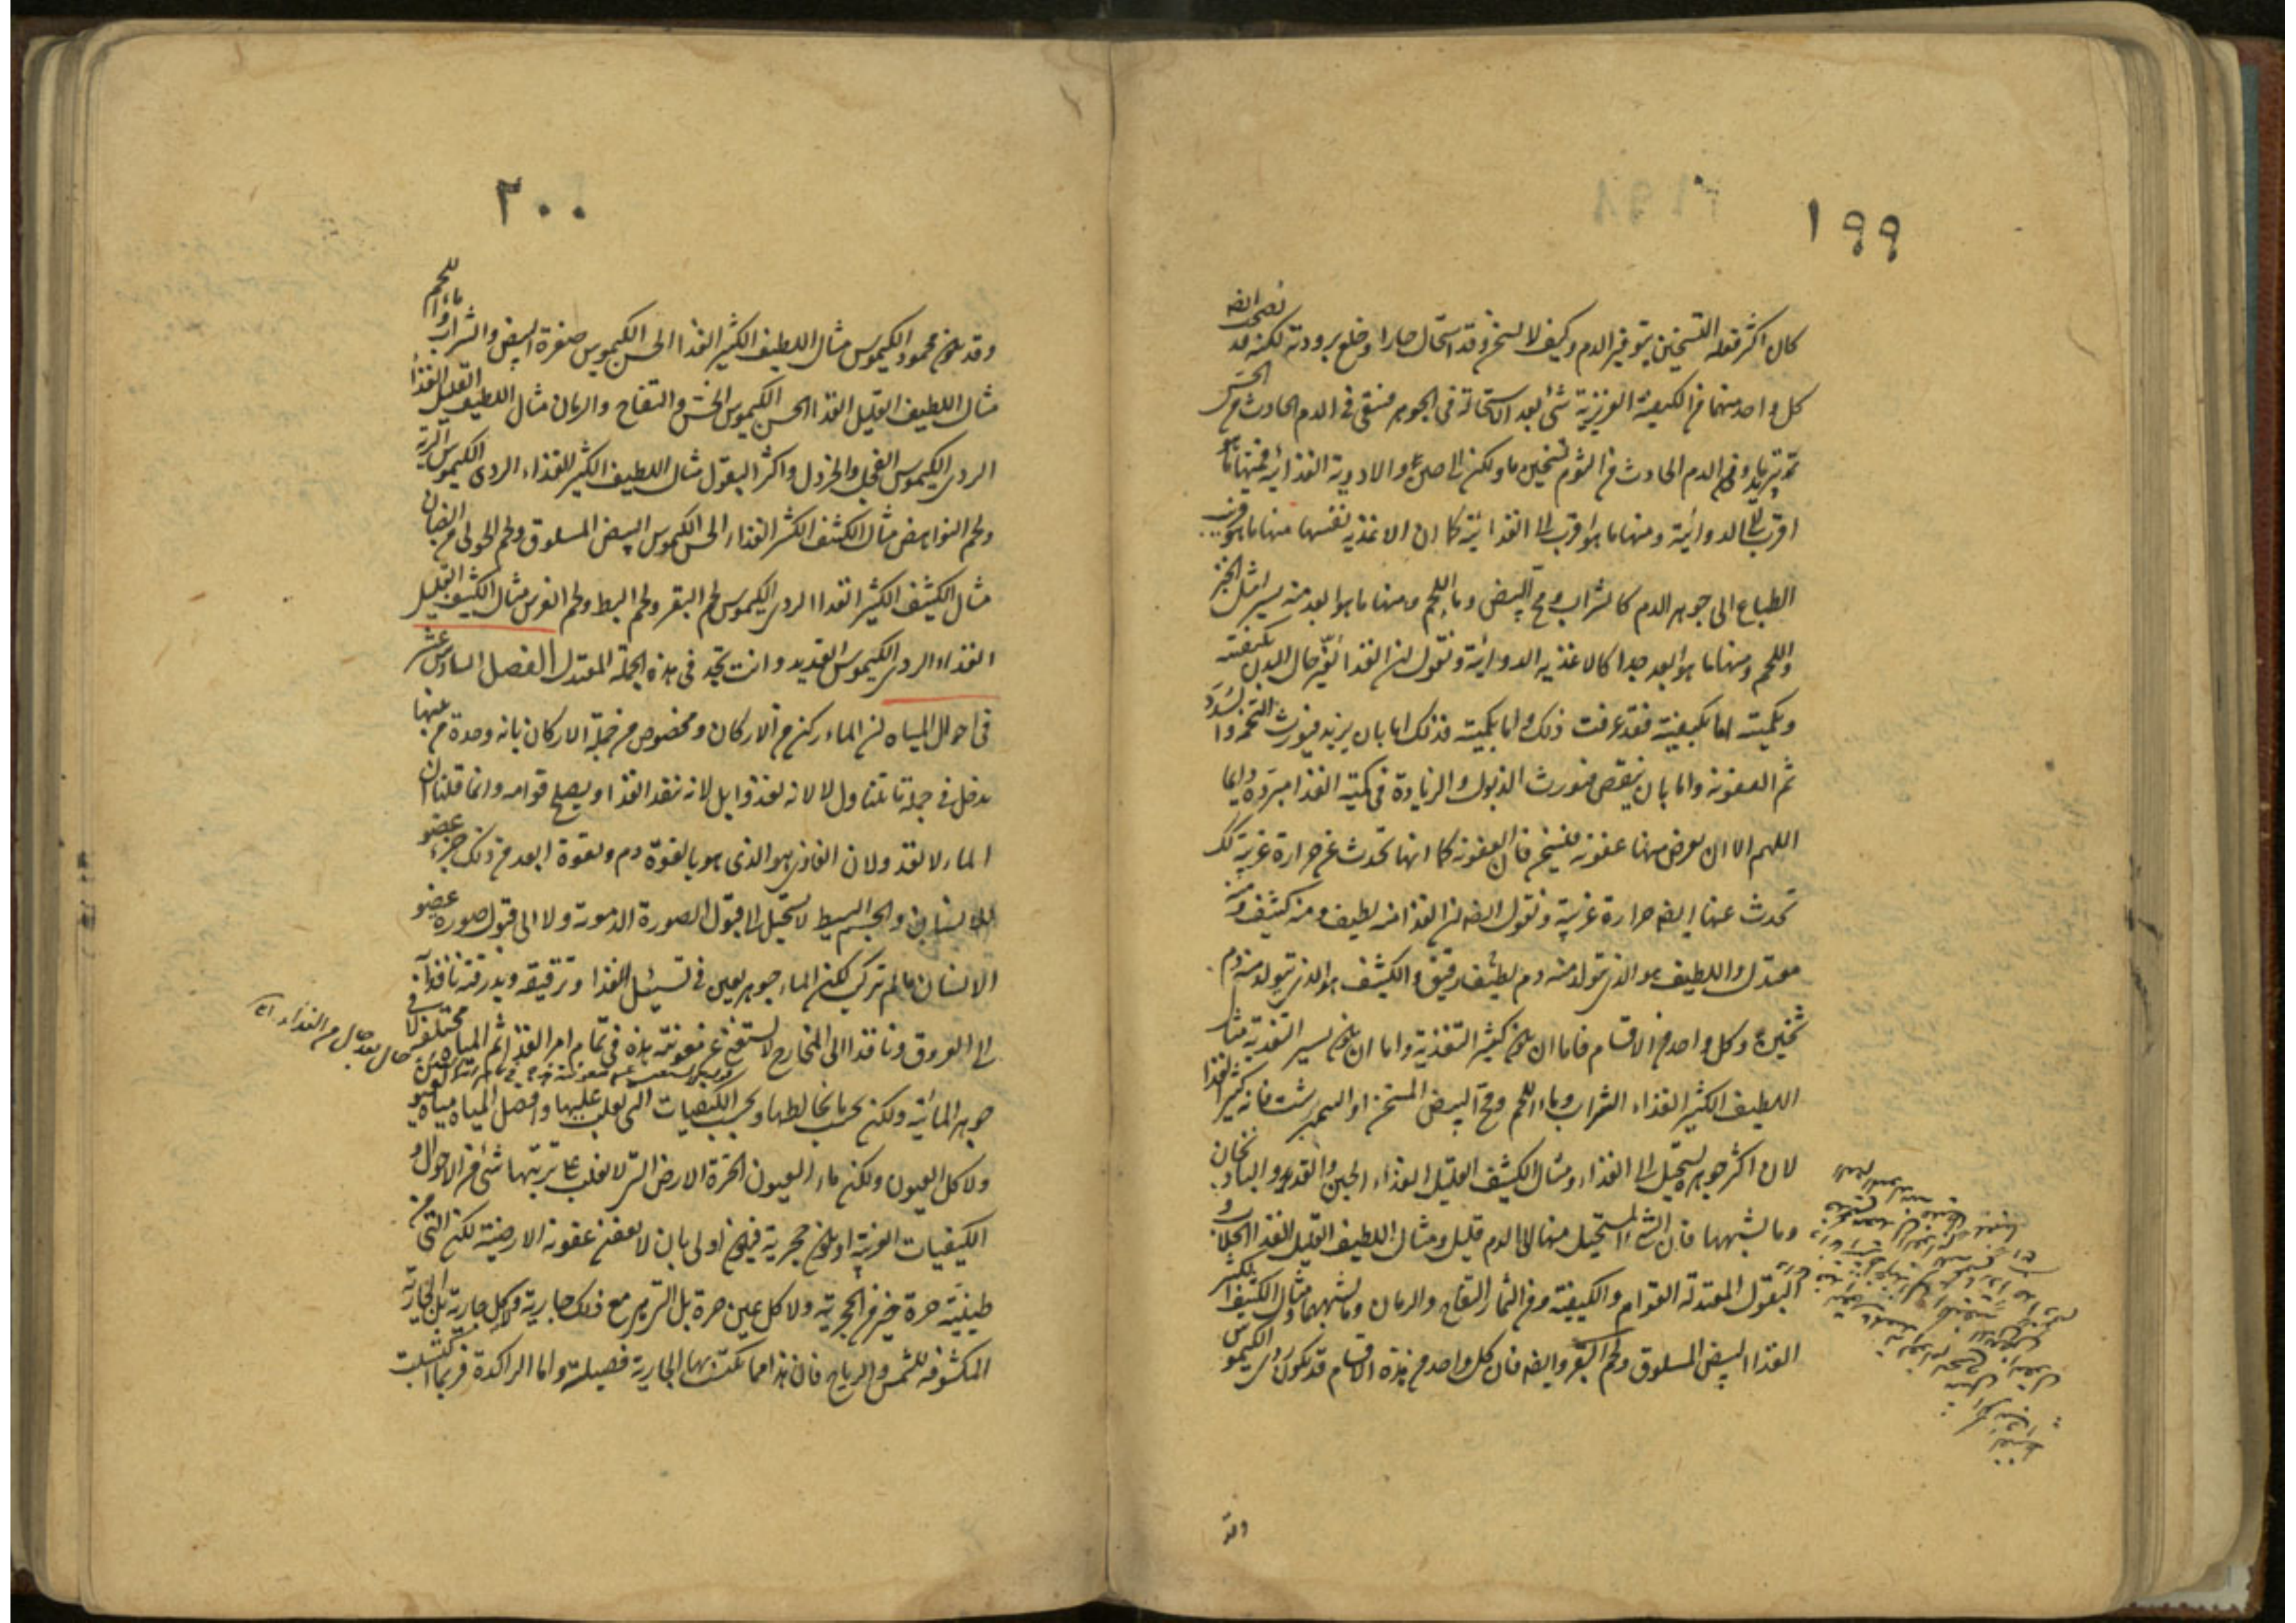 ١٩٩
كان اكثر فعله التسخين بتوفير الدم وكيف لا يسخن وقد استحال حارا وخلع برودته لكنه قد يصحب ايضه
كل واحد منهما من الكيفية الغريزية شئ بعد الاستحالة في الجوهر فيبقى في الدم الحادث من الخس
تبريد ما وفي الدم الحادث من الثوم تسخين ما ولكن الى حين والادوية الغذائية فمنها ما هو
اقرب الى الدوائية ومنها ما هو اقرب الى الغذائية كما ان الاغذية نفسها منها ما هو قريب
الطباع الى جوهر الدم كالشراب ومح البيض وماء اللحم ومنها ما هو ابعد منه يسيرا مثل الخبز
واللحم ومنها ما هو ابعد جدا كالاغذية الدوائية ونقول ان الغذا يغير حال البدن بكيفيته
وبكميته اما بكيفيته فقد عرفت ذلك واما بكميته فذلك اما بان يزيد فيورث التخمة والسدد
ثم العفونة واما بان ينقص فيورث الذبول والزيادة في كمية الغذا مبردة دايما
اللهم الا ان يعرض منها عفونة فيسخن فان العفونة كما انها تحدث عن حرارة غريبة كذلك
تحدث عنها ايضه حرارة غريبة ونقول ايضه ان الغذا منه لطيف ومنه كثيف ومنه
معتدل واللطيف هو الذي يتولد منه دم لطيف رقيق والكثيف هو الذي يتولد منه دم
ثخين وكل واحد من الاقسام فاما ان يكون كثير التغذية واما ان يكون يسير التغذية مثال
اللطيف الكثير الغذاء الشراب وماء اللحم ومح البيض المسخن او النيمبرشت فانه كثير الغذا
لان اكثر جوهره يستحيل الى الغذاء ومثال الكثيف القليل الغذاء الجبن والقديد والباذنجان
وما يشبهها فان الشئ المستحيل منها الى الدم قليل ومثال اللطيف القليل الغذا الجلاب و
البقول المعتدلة القوام والكيفية ومن الثمار التفاح والرمان وما يشبههما ومثال الكثيف الكثير
الغذا البيض المسلوق ولحم البقر وايضه فان كل واحد من هذه الاقسام قد يكون ردى الكيموس
وقد
٢٠٠
وقد يكون محمود الكيموس مثال اللطيف الكثير الغذا الحسن الكيموس صفرة البيض والشراب وماء اللحم
مثال اللطيف القليل الغذا الحسن الكيموس الخس والتفاح والرمان مثال اللطيف القليل الغذا
الردى الكيموس الفجل والخردل واكثر البقول مثال اللطيف الكثير الغذاء الردى الكيموس الرية
ولحم النواهض مثال الكثيف الكثير الغذاء الحسن الكيموس البيض المسلوق ولحم الحولى من الضان
مثال الكثيف الكثير الغذا الردى الكيموس لحم البقر ولحم البط ولحم الفرس مثال الكثيف القليل
الغذاء الردى الكيموس القديد وانت تجد في هذه الجملة المعتدل الفصل السادس عشر
في احوال المياه ان الماء ركن من الاركان ومخصوص من جملة الاركان بانه وحده من بينها
يدخل في جملة ما يتناول لا لانه يغذو بل لانه ينفذ الغذا ويصلح قوامه وانما قلنا ان
الماء لا يغذو لان الغاذى هو الذى هو بالقوة دم وبقوة ابعد من ذلك جزء عضو
الانسان والجسم البسيط لا يستحيل الى قبول الصورة الدموية ولا الى قبول صورة عضو
الانسان ما لم يتركب لكن الماء جوهر يعين في تسييل الغذا وترقيقه وبذرقته نافذا
الى العروق ونافذا الى المخارج لا يستغنى عن معونته هذه في تمام امر الغذا ثم المياه مختلفة لا في
جوهر المائية ولكن بحسب ما يخالطها وبحسب الكيفيات التى تغلب عليها وافضل المياه مياه العيون
ولا كل العيون ولكن ماء العيون الحرة الارض التى لا يغلب على تربتها شئ من الاحوال و
الكيفيات الغريبة او يكون حجرية فيكون اولى بان لا يعفن عفونة الارضية لكن التى من
طينية حرة خير من الحجرية ولا كل عين حرة بل التى هى مع ذلك جارية ولا كل جارية بل الجارية
المكشوفة للشمس والرياح فان هذا مما تكتسب بها الجارية فضيلة واما الراكدة فربما اكتسبت